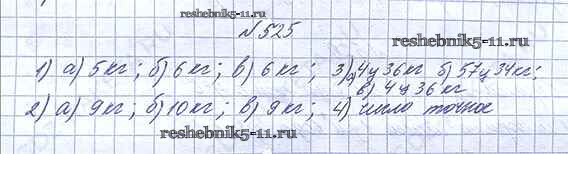 reshebnik5-11.ru
№525
reshebnik5-11.ru
1) а) 5кг; б) 6кг; в) 6кг; 3) а) 4ц 36кг б) 57ц 34кг;
в) 4ц 36кг
2) а) 9кг; б) 10кг; в) 9кг; 4) число точное
reshebnik5-11.ru